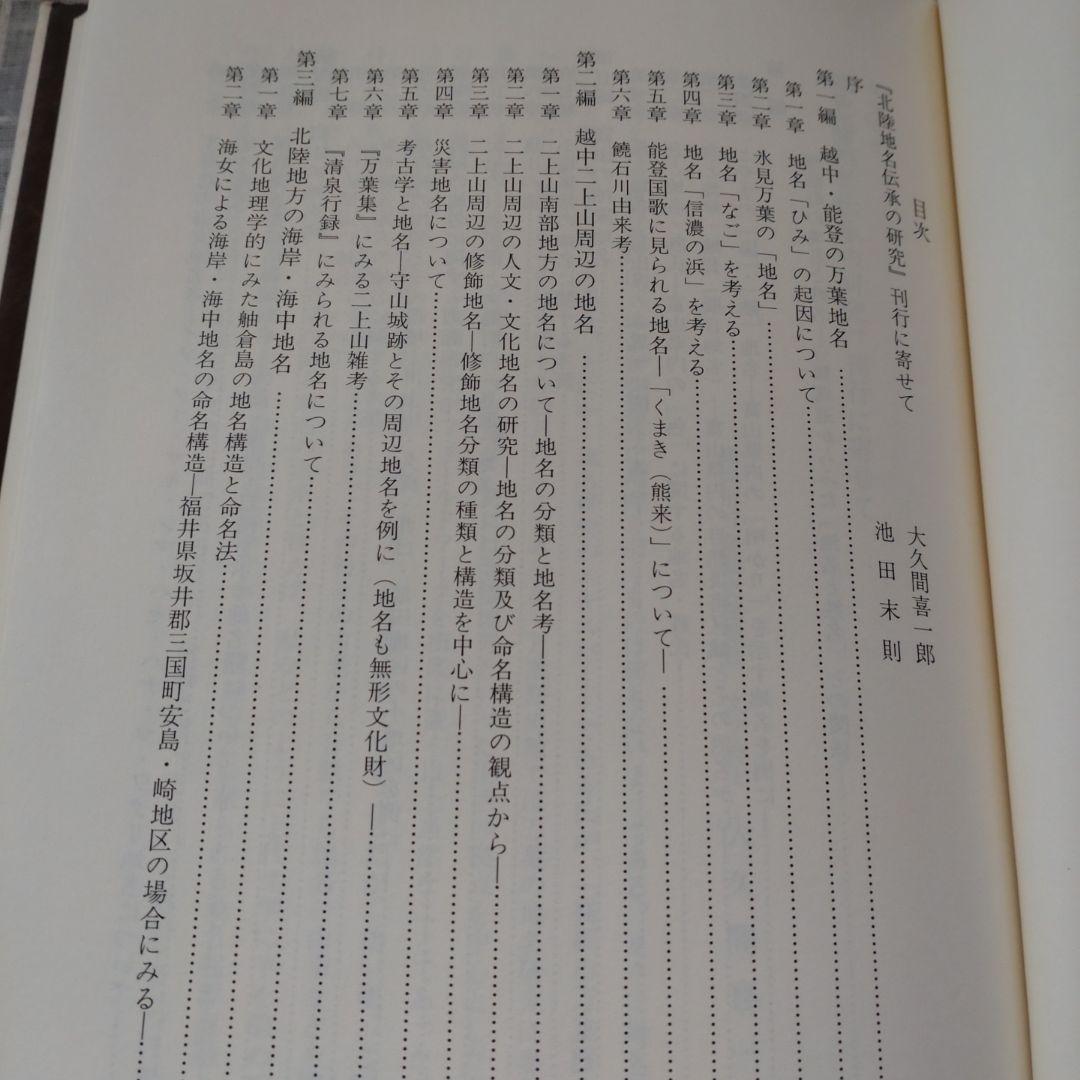 目次
『北陸地名伝承の研究』刊行に寄せて 大久間喜一郎
序 池田末則
第一編 越中・能登の万葉地名
第一章 地名「ひみ」の起因について
第二章 氷見万葉の「地名」
第三章 地名「なご」を考える
第四章 地名「信濃の浜」を考える
第五章 能登国歌に見られる地名―「くまき（熊来）」について―
第六章 饒石川由来考
第二編 越中二上山周辺の地名
第一章 二上山南部地方の地名について―地名の分類と地名考―
第二章 二上山周辺の人文・文化地名の研究―地名の分類及び命名構造の観点から―
第三章 二上山周辺の修飾地名―修飾地名分類の種類と構造を中心に―
第四章 災害地名について
第五章 考古学と地名―守山城跡とその周辺地名を例に（地名も無形文化財）―
第六章 『万葉集』にみる二上山雑考
第七章 『清泉行録』にみられる地名について
第三編 北陸地方の海岸・海中地名
第一章 文化地理学的にみた舳倉島の地名構造と命名法
第二章 海女による海岸・海中地名の命名構造―福井県坂井郡三国町安島・崎地区の場合にみる―